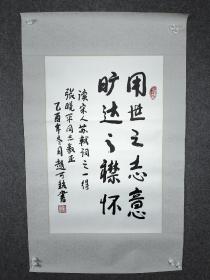 用世之志意
旷达之襟怀
读宋人苏轼词之一得
张晓军同志教正
乙酉年冬月赵可铭书